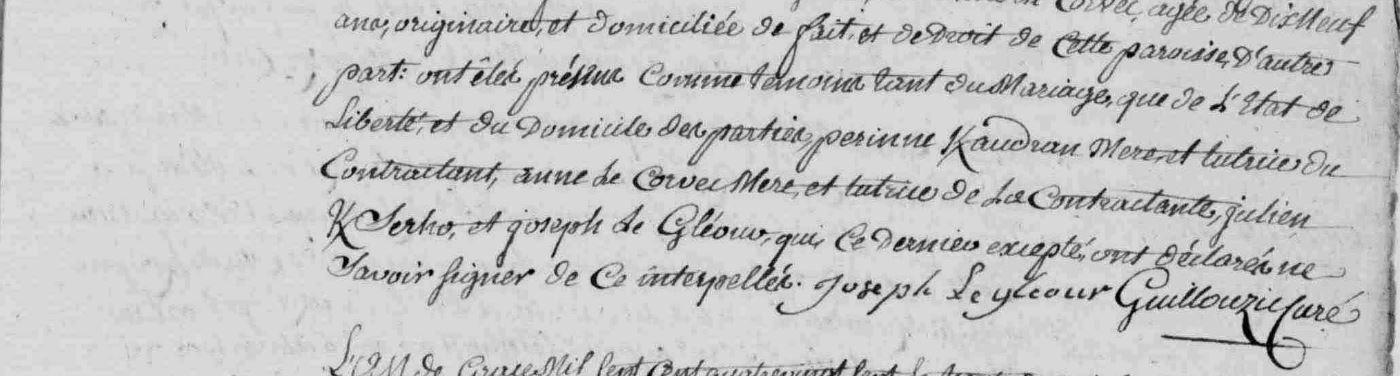 Corvec, agée de Dix Neuf
ans, originaire, et domiciliée de fait, et de Droit de Cette paroisse, D'autre
part: ont êtés présens Comme temoins tant du Mariage, que de L'Etat de
Liberté, et du Domicile des parties, perinne Kaudran Mere, et tutrice du
Contractant, anne Le Corvec Mere, et tutrice de La Contractante, julien
K Serho, et joseph Le Gléour, qui, Ce Dernier excepté, ont déclarés ne
Savoir signer de Ce interpellés. Joseph Le gleour Guillouzic Curé
L'An de Grace Mil Sept Cent quatrevingt Sept le